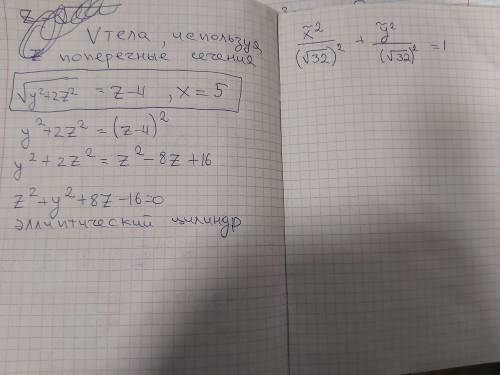 V тела, используя
поперечные сечения
√(y²+2z²) = z-4 , x = 5
y²+2z² = (z-4)²
y²+2z² = z²-8z+16
z²+y²+8z-16=0
эллиптический цилиндр
x̃²/(√32)² + ỹ²/(√32)² = 1